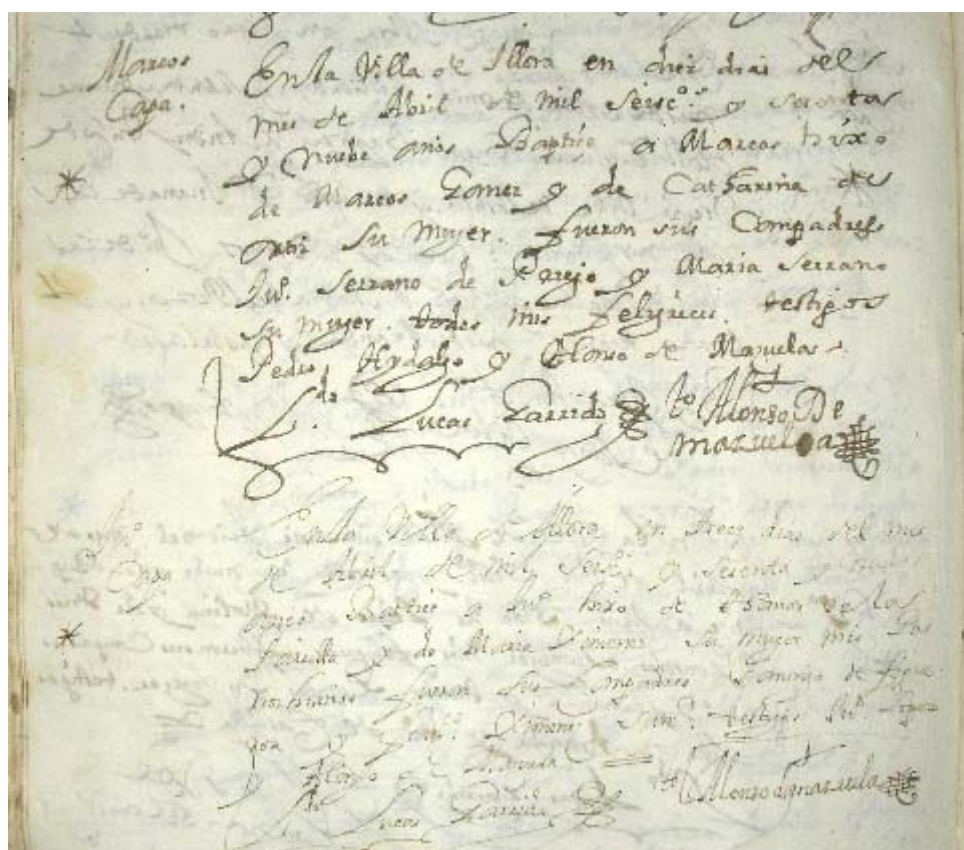 Marcos
En la Villa de Illora en diez dias del
mes de Abril de mil seisc.os y sesenta
y nuebe años Baptiçe a Marcos hixo
de Marcos Gomez y de Catharina de
ortiz su muger. fueron sus Compadres
Ju.o Serrano de Parejo y Maria Serrano
su muger. todos mis feligreses. testigos
Pedro Hydalgo y Alonso de Maruelas
L.do Lucas Garrido t.o Alonso De
maruelas
En la Villa de Illora en trece dias del mes
de Abril de mil seisc.os y sesenta y
años Baptiçe a Ju.o hixo de de las
y de Maria Ximenez su muger mis
fueron sus Compadres Domingo de
y Ximenez testigos Ju.o
y Alonso de Maruela
L.do Lucas Garrido Alonso de maruela